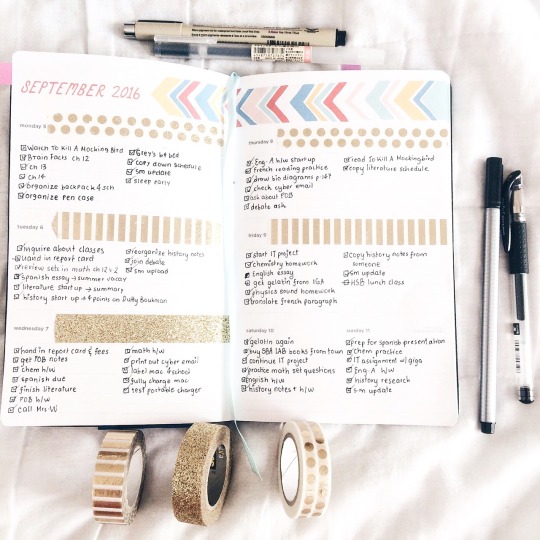 SEPTEMBER 2016
monday 5
Watch To Kill A Mocking Bird
Brain Facts ch 12
ch 13
ch 14
organize backpack 4 sch
organize pen case
Grey's
copy down schedule
sm update
sleep early
tuesday 6
inquire about classes
hand in report card
review sets in math ch 1 2 v 2
Spanish essay → summer vacay
literature start up → summary
history start up → 4 points on Duffy Boukman
reorganize history notes
join debate
sm upload
wednesday 7
hand in report card & fees
get POB notes
chem h/w
spanish due
finish literature
POB h/w
call Mrs. W
math h/w
print out cyber email
label mac 4 school
fully charge mac
test portable charger
thursday 8
Eng. A h/w start up
french reading practice
draw bio diagrams p 167
check cyber email
ask about POB
debate ask
read To Kill A Mockingbird
copy literature schedule
friday 9
start IT project
chemistry homework
English essay
get gelatin from IGA
physics bound homework
translate french paragraph
copy history notes from
someone
sm update
HSB lunch class
saturday 10
gelatin again
buy SBA LAB books from town
continue IT project
practice math set questions
english h/w
history notes + h/w
sunday 11
prep for spanish presentation
Chem practice
IT assignment w/ giga
Eng. A h/w
history research
sm update